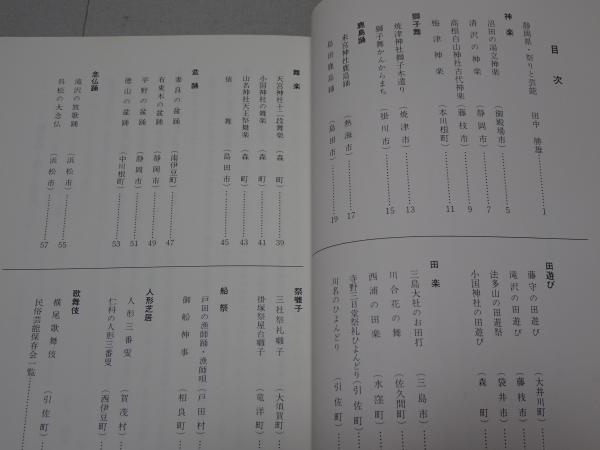 目次
静岡県・祭りと芸能 田中勝雄……1
神楽
沼田の湯立神楽(御殿場市)……5
清沢の神楽(静岡市)……7
高根白山神社古代神楽(藤枝市)……9
梅津神楽(本川根町)……11
獅子舞
焼津神社獅子木遣り(焼津市)……13
獅子舞かんからまち(掛川市)……15
鹿島踊
来宮神社鹿島踊(熱海市)……17
島田鹿島踊(島田市)……19
田遊び
藤守の田遊び(大井川町)
滝沢の田遊び(藤枝市)
法多山の田遊祭(袋井市)
小国神社の田遊び(森町)
田楽
三島大社のお田打(三島市)
川合花の舞(佐久間町)
西浦の田楽(水窪町)
寺野三日堂祭礼ひよんどり(引佐町)
川名のひよんどり(引佐町)
舞楽
天宮神社十二段舞楽(森町)……39
小国神社の舞楽(森町)……41
山名神社天王祭舞楽(森町)……43
猿舞(島田市)……45
盆踊
妻良の盆踊(南伊豆町)……47
有東木の盆踊(静岡市)……49
平野の盆踊(静岡市)……51
徳山の盆踊(中川根町)……53
念仏踊
滝沢の放歌踊(浜松市)……55
呉松の大念仏(浜松市)……57
祭囃子
三社祭礼囃子(大須賀町)
掛塚祭屋台囃子(竜洋町)
船祭
戸田の漁師踊・漁師唄(戸田村)
御船神事(相良町)
人形芝居
人形三番叟(賀茂村)
仁科の人形三番叟(西伊豆町)
歌舞伎
横尾歌舞伎(引佐町)
民俗芸能保存会一覧……